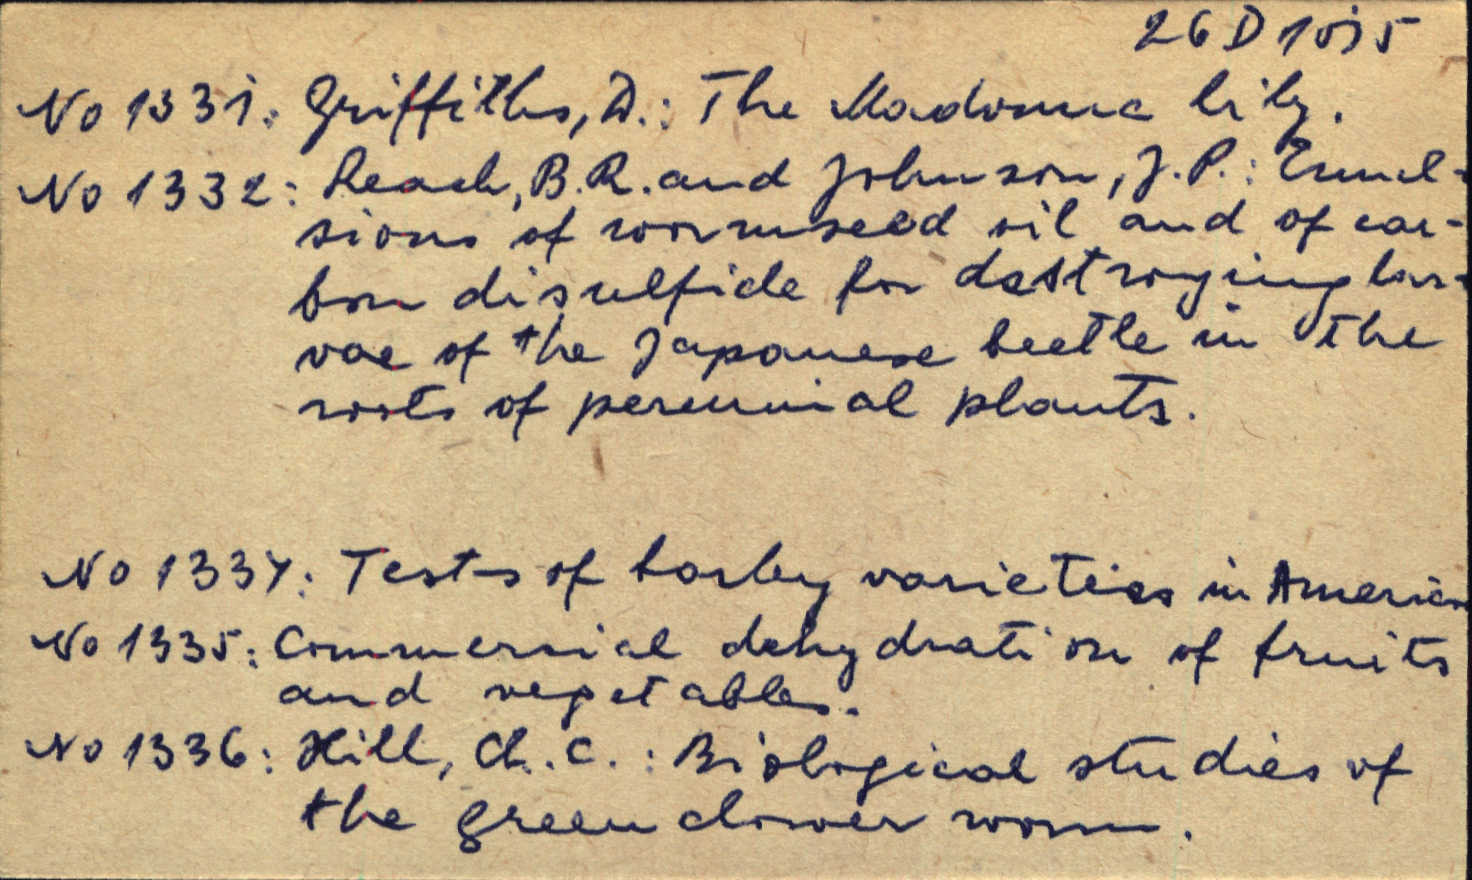 26 D 1035
No 1331: Griffiths, D.: The Madonna lily.
No 1332: Leach, B.R. and Johnson, J.P.: Emul-
sions of wormseed oil and of car-
bon disulfide for destroying lar-
vae of the Japanese beetle in the
roots of perennial plants.
No 1334: Tests of barley varieties in America
No 1335: Commercial dehydration of fruits
and vegetables.
No 1336: Hill, Ch. C.: Biological studies of
the green clower worm.